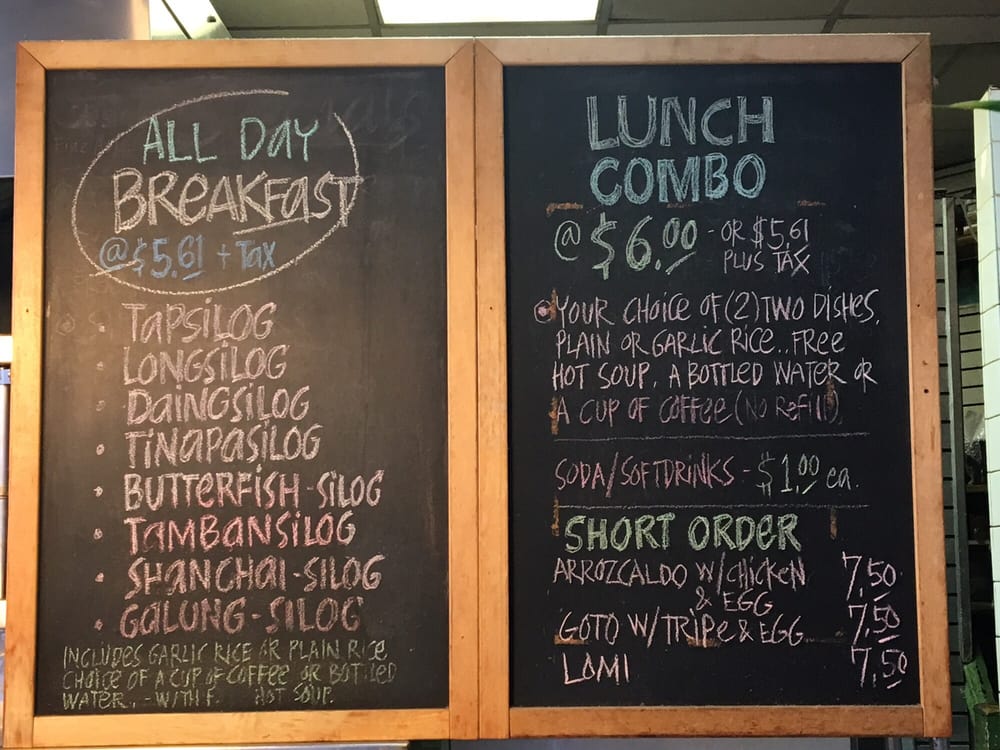 ALL DAY
BREAKFAST
@ $5.61 + TAX
• TAPSILOG
• LONGSILOG
• DAINGSILOG
• TINAPASILOG
• BUTTERFISH-SILOG
• TAMBANSILOG
• SHANGHAI-SILOG
• GALUNG-SILOG
INCLUDES GARLIC RICE OR PLAIN RICE
CHOICE OF A CUP OF COFFEE OR BOTTLED
WATER - WITH F HOT SOUP.
LUNCH
COMBO
@ $6.00 - OR $5.61
PLUS TAX
YOUR CHOICE OF (2) TWO DISHES,
PLAIN OR GARLIC RICE.. FREE
HOT SOUP. A BOTTLED WATER OR
A CUP OF COFFEE (NO REFILL)
SODA/SOFTDRINKS - $1.00 ea.
SHORT ORDER
ARROZCALDO W/CHICKEN 7.50
& EGG
GOTO W/TRIPE & EGG 7.50
LOMI 7.50